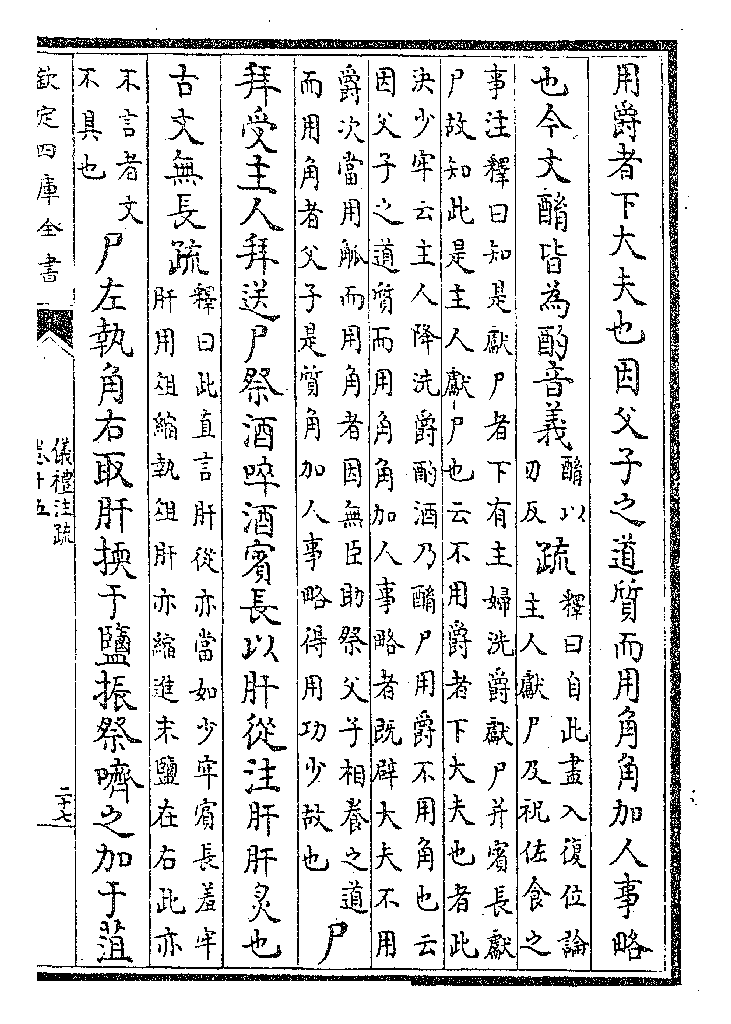 用爵者下大夫也因父子之道質而用角角加人事略
也今文酳皆為酌音義酳以刃反疏釋曰自此盡入復位論主人獻尸及祝佐食之
事注釋曰知是獻尸者下有主婦洗爵獻尸并賓長獻
尸故知此是主人獻尸也云不用爵者下大夫也者此
決少牢云主人降洗爵酌酒乃酳尸用爵不用角也云
因父子之道質而用角角加人事略者既辟大夫不用
爵次當用觚而用角者因無臣助祭父子相養之道
而用角者父子是質角加人事略得用功少故也尸
拜受主人拜送尸祭酒啐酒賓長以肝從注肝肝炙也
古文無長疏釋曰此直言肝從亦當如少牢賓長羞牢
肝用俎縮執俎肝亦縮進末鹽在右此亦
不言者文不具也尸左執角右取肝㨎于鹽振祭嚌之加于菹
欽定四庫全書
儀禮注疏
卷十五
二十七